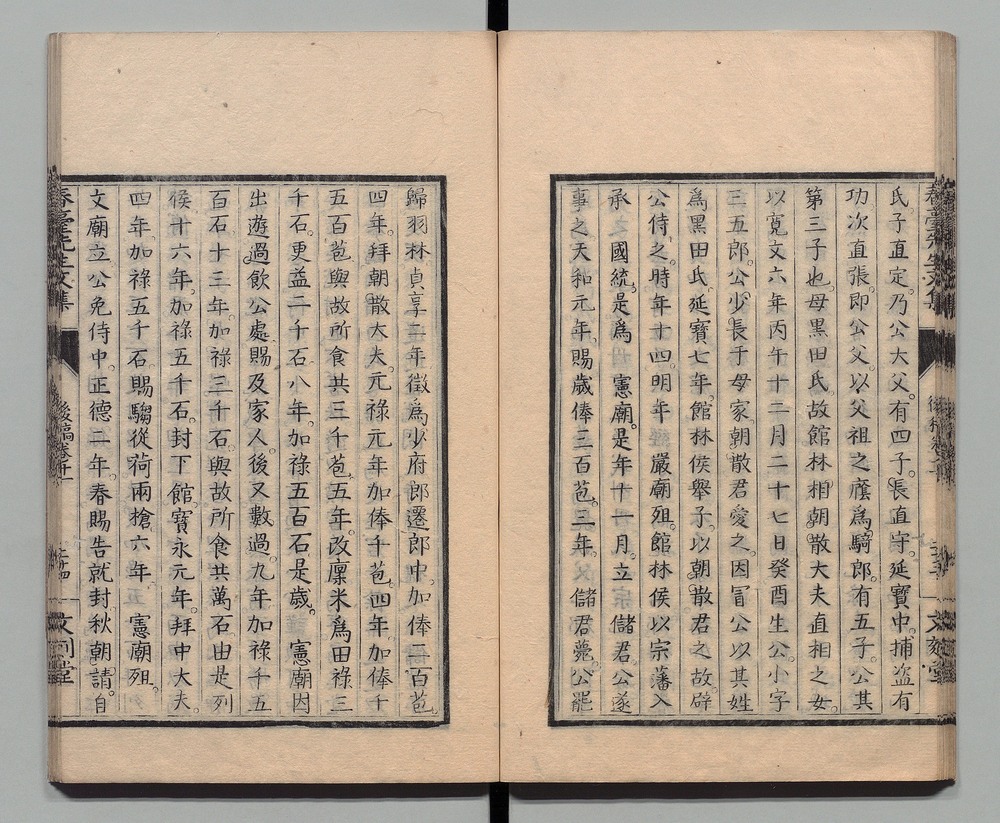 氏子直定。乃公大父。有四子。長直守。延寶中。捕盜有
功。次直張。即公父。以父祖之廕。爲騎郎。有五子。公其
第三子也。母黑田氏。故館林相朝散大夫直相之女。
以寬文六年丙午十二月二十七日癸酉生公。小字
三五郎。公少長于母家。朝散君愛之。因冒公以其姓
爲黑田氏。延寶七年。館林侯舉子。以朝散君之故。辟
公侍之。時年十四。明年 嚴廟殂。館林侯以宗藩入
承 國統。是爲 憲廟。是年十一月。立儲君。公遂
事之。天和元年。賜歲俸三百苞。三年。儲君薨。公罷
歸羽林。貞享二年。徵爲少府郎。遷郎中。加俸二百苞。
四年。拜朝散大夫。元祿元年。加俸千苞。四年。加俸千
五百苞。與故所食共三千苞。五年。改廩米爲田祿三
千石。更益二千石。八年。加祿五百石。是歲。 憲廟因
出遊過飲公處。賜及家人。後又數過。九年。加祿千五
百石。十三年。加祿三千石。與故所食共萬石。由是列
侯。十六年。加祿五千石。封下館。寶永元年。拜中大夫。
四年。加祿五千石。賜騶從荷兩槍。六年。 憲廟殂。
文廟立。公免侍中。正德二年春。賜告就封。秋。朝請。自
春臺先生文集
後稿卷